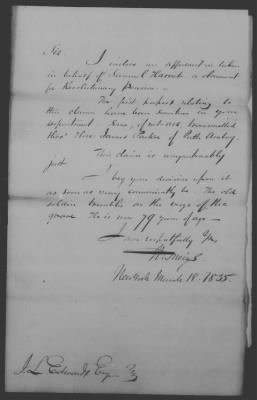 Sir.
I inclose an affidavit as taken
in behalf of Samuel a claimant
for Revolutionary Pension -
The first papers relating to
this claim have been sometime in your
department - were, if not transmitted
thro' Hon. James Parker of Perth Amboy.
This claim is unquestionably
just
I beg your decision upon it
as soon as may conveniently be. The old
soldier trembles on the verge of the
grave. He is now 79 years of age -
I am respectfully Yrs
New York March 18. 1835.
J. L. Edwards Esq